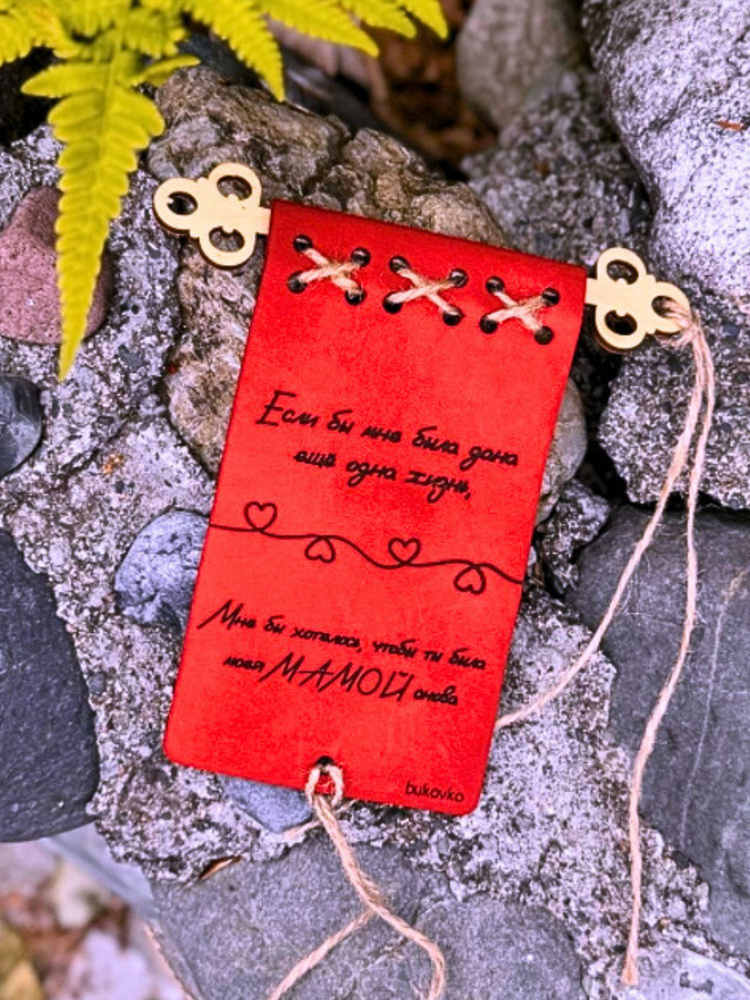 Если бы мне была дана
ещё одна жизнь,
Мне бы хотелось, чтобы ты была
моей МАМОЙ снова
bukovko